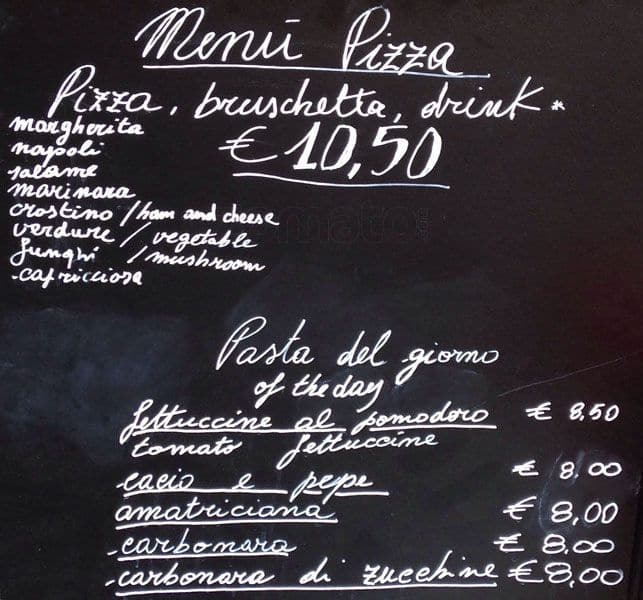 Menú Pizza
Pizza, bruschetta, drink*
€ 10,50
margherita
napoli
salame
marinara
crostino / ham and cheese
verdure / vegetable
funghi / mushroom
capricciosa
Pasta del giorno
of the day
fettuccine al pomodoro € 8,50
tomato fettuccine
cacio e pepe € 8,00
amatriciana € 8,00
carbonara € 8,00
carbonara di zucchine € 8,00